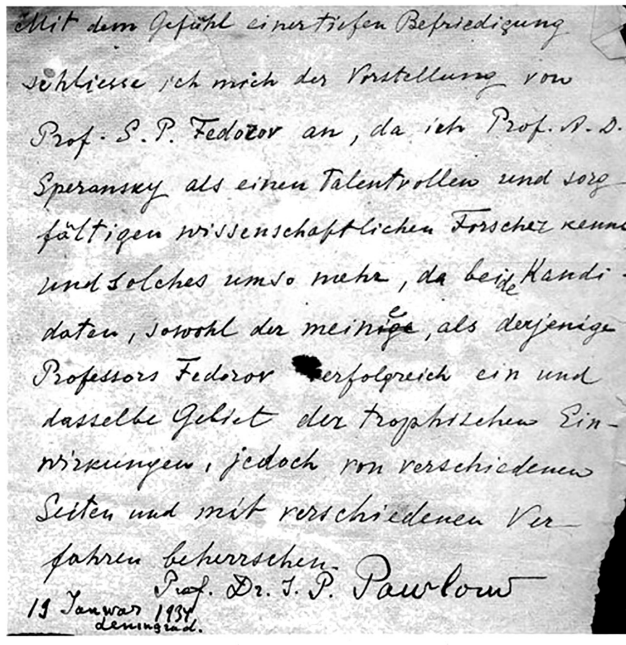 Mit dem Gefühl einer tiefen Befriedigung
schliesse ich mich der Vorstellung von
Prof. S. P. Fedorov an, da ich Prof. A. D.
Speransky als einen talentvollen und sorg-
fältigen wissenschaftlichen Forscher kenne
und solches umso mehr, da beide Kandi-
daten, sowohl der meinige, als derjenige
Professors Fedorov erfolgreich ein und
dasselbe Gebiet der trophischen Ein-
wirkungen, jedoch von verschiedenen
Seiten und mit verschiedenen Ver-
fahren beherrschen.
Prof. Dr. I. P. Pawlow
19 Januar 1934
Leningrad.